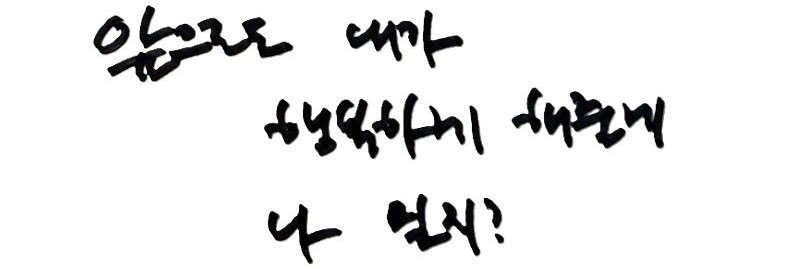 앞으로도 내가
행복하게 해줄게
나 믿지?